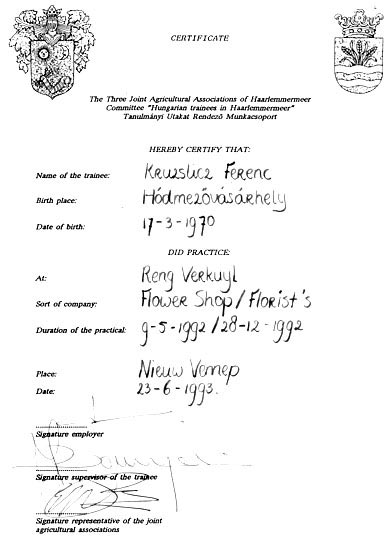 CERTIFICATE
The Three Joint Agricultural Associations of Haarlemmermeer
Committee "Hungarian trainees in Haarlemmermeer"
Tanulmányi Utakat Rendező Munkacsoport
HEREBY CERTIFY THAT:
Name of the trainee: Kruzslicz Ferenc
Birth place: Hódmezővásárhely
Date of birth: 17-3-1970
DID PRACTICE:
At: Reng Verkuyl
Sort of company: Flower Shop / Florist's
Duration of the practical: 9-5-1992 / 28-12-1992
Place: Nieuw Vennep
Date: 23-6-1993.
Signature employer
Signature supervisor of the trainee
Signature representative of the joint
agricultural associations